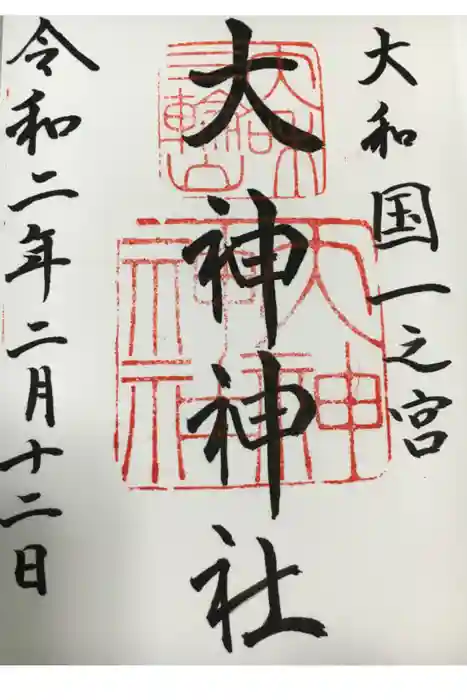 大和国一之宮
大神神社
令和二年二月十二日
三輪山
大神神社